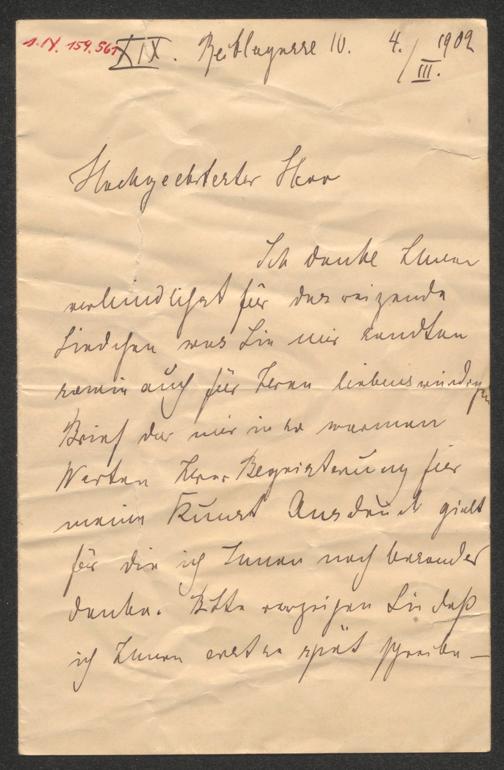 I.N. 159.561
XIX. Reithlegasse 10. 4./III. 1902
Hochgeehrtester Herr
Ich danke Ihnen
verbindlichst für das reizende
Liedchen was Sie mir sandten
sowie auch für Ihren liebenswürdigen
Brief der mir in so warmen
Worten Ihrer Begeisterung für
meine Kunst Ausdruck giebt
für die ich Ihnen noch besonders
danke. Bitte verzeihen Sie daß
ich Ihnen erst so spät schreibe –